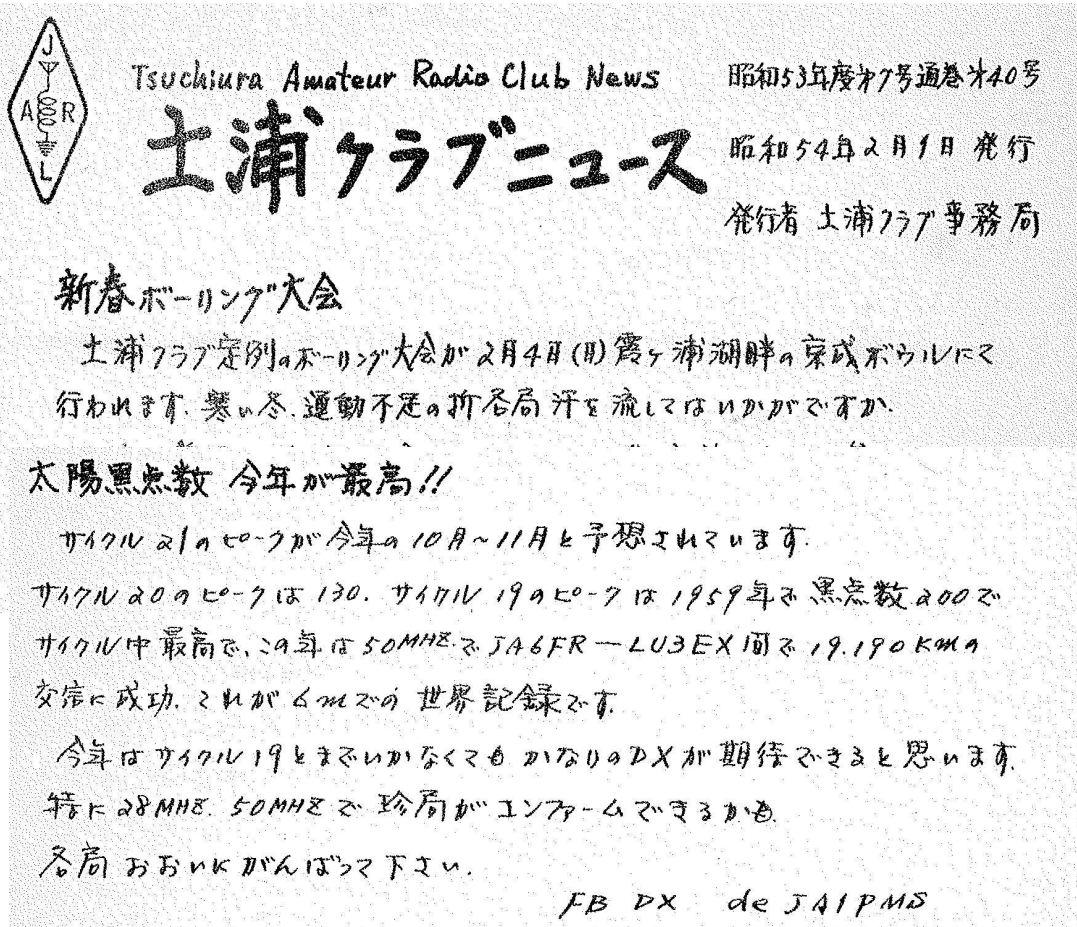 J
A R
L
Tsuchiura Amateur Radio Club News
土浦クラブニュース
昭和53年度オ7号通巻オ40号
昭和54年2月1日 発行
発行者 土浦クラブ事務局
新春ボーリング大会
土浦クラブ定例のボーリング大会が2月4日(日)霞ヶ浦湖畔の京成ボウルにて
行われます.寒い冬.運動不足の折各局汗を流してはいかがですか.
太陽黒点数 今年が最高!!
サイクル21のピークが今年の10月~11月と予想されています.
サイクル20のピークは130.サイクル19のピークは1959年で黒点数200で
サイクル中最高で、この年は50MHZでJA6FR―LU3EX間で19.190KMの
交信に成功.これが6mでの世界記録です.
今年はサイクル19とまでいかなくてもかなりのDXが期待できると思います.
特に28MHZ.50MHZで珍局がコンファームできるかも.
各局おおいにがんばって下さい.
FB DX de JA1PMS